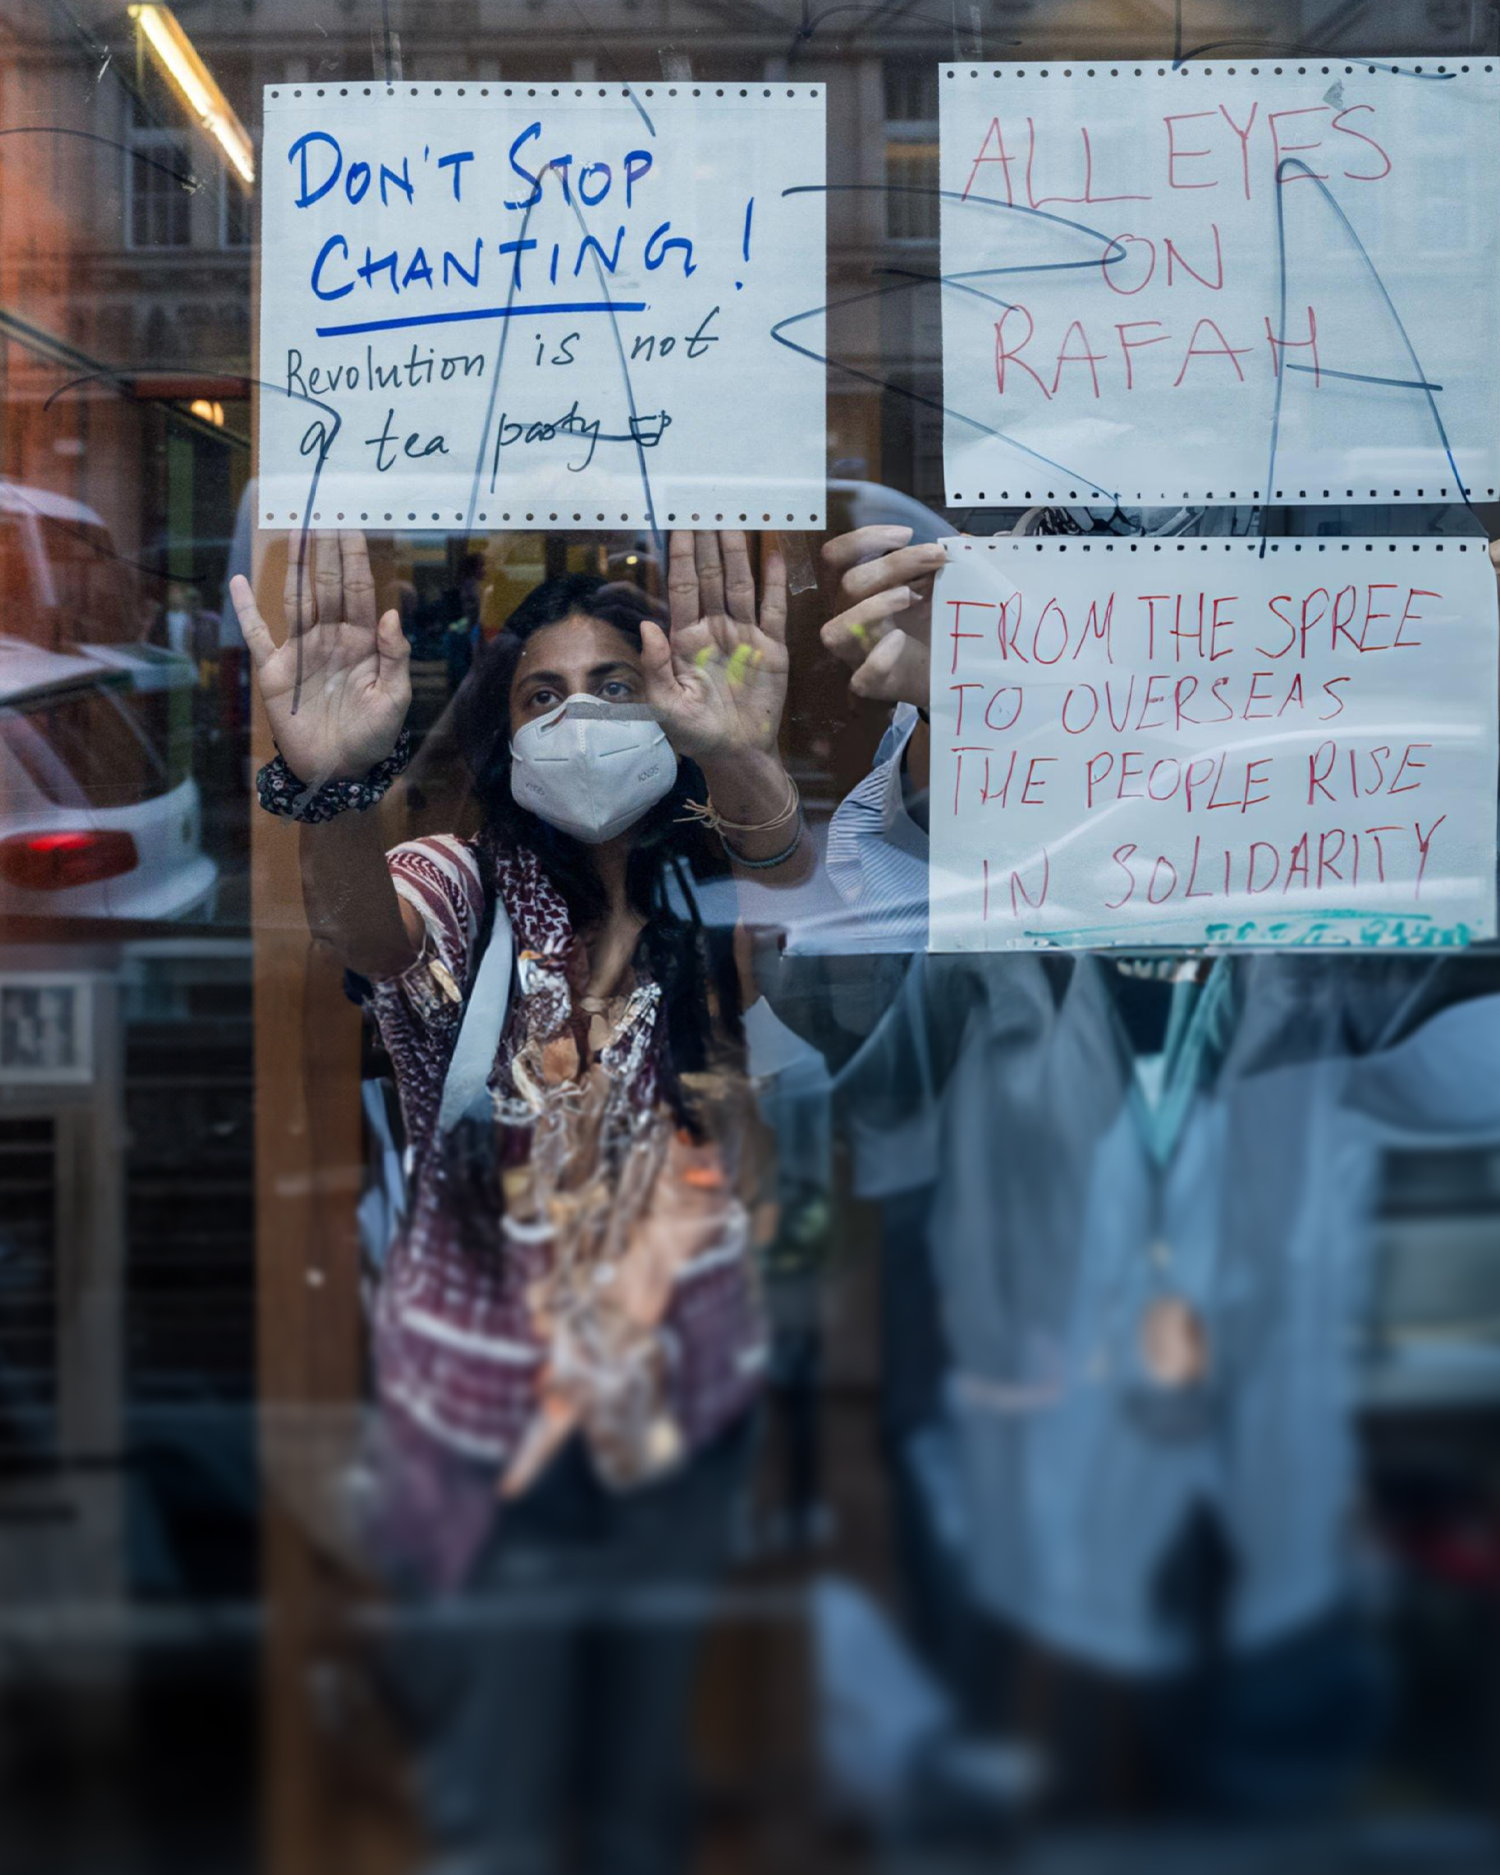 DON'T STOP
CHANTING!
Revolution is not
a tea party
ALL EYES
ON
RAFAH
FROM THE SPREE
TO OVERSEAS
THE PEOPLE RISE
IN SOLIDARITY
KN95